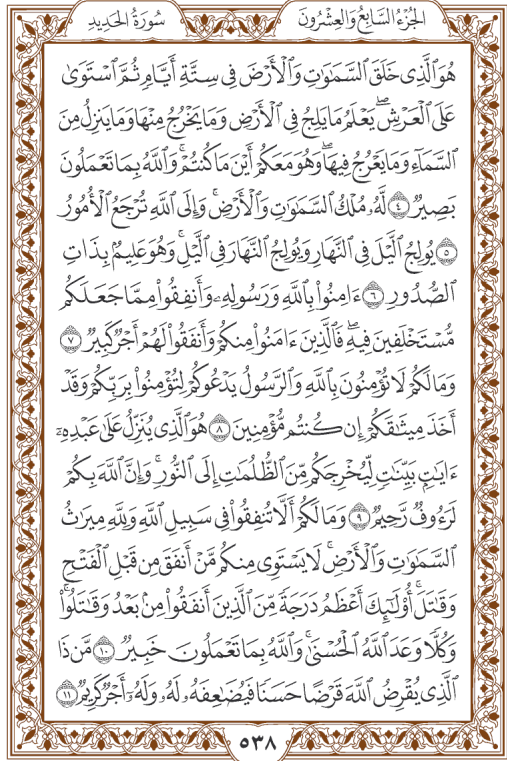 الجُزْءُ السَّابِعُ وَالعِشْرُونَ
سُورَةُ الحَدِيدِ
هُوَ ٱلَّذِى خَلَقَ ٱلسَّمَٰوَٰتِ وَٱلْأَرْضَ فِى سِتَّةِ أَيَّامٍ ثُمَّ ٱسْتَوَىٰ
عَلَى ٱلْعَرْشِ ۖ يَعْلَمُ مَا يَلِجُ فِى ٱلْأَرْضِ وَمَا يَخْرُجُ مِنْهَا وَمَا يَنزِلُ مِنَ
ٱلسَّمَآءِ وَمَا يَعْرُجُ فِيهَا ۖ وَهُوَ مَعَكُمْ أَيْنَ مَا كُنتُمْ ۚ وَٱللَّهُ بِمَا تَعْمَلُونَ
بَصِيرٌ ٤ لَّهُۥ مُلْكُ ٱلسَّمَٰوَٰتِ وَٱلْأَرْضِ ۚ وَإِلَى ٱللَّهِ تُرْجَعُ ٱلْأُمُورُ
٥ يُولِجُ ٱلَّيْلَ فِى ٱلنَّهَارِ وَيُولِجُ ٱلنَّهَارَ فِى ٱلَّيْلِ ۚ وَهُوَ عَلِيمٌۢ بِذَاتِ
ٱلصُّدُورِ ٦ ءَامِنُوا۟ بِٱللَّهِ وَرَسُولِهِۦ وَأَنفِقُوا۟ مِمَّا جَعَلَكُم
مُّسْتَخْلَفِينَ فِيهِ ۖ فَٱلَّذِينَ ءَامَنُوا۟ مِنكُمْ وَأَنفَقُوا۟ لَهُمْ أَجْرٌ كَبِيرٌ ٧
وَمَا لَكُمْ لَا تُؤْمِنُونَ بِٱللَّهِ ۙ وَٱلرَّسُولُ يَدْعُوكُمْ لِتُؤْمِنُوا۟ بِرَبِّكُمْ وَقَدْ
أَخَذَ مِيثَٰقَكُمْ إِن كُنتُم مُّؤْمِنِينَ ٨ هُوَ ٱلَّذِى يُنَزِّلُ عَلَىٰ عَبْدِهِۦٓ
ءَايَٰتٍۭ بَيِّنَٰتٍ لِّيُخْرِجَكُم مِّنَ ٱلظُّلُمَٰتِ إِلَى ٱلنُّورِ ۚ وَإِنَّ ٱللَّهَ بِكُمْ
لَرَءُوفٌ رَّحِيمٌ ٩ وَمَا لَكُمْ أَلَّا تُنفِقُوا۟ فِى سَبِيلِ ٱللَّهِ وَلِلَّهِ مِيرَٰثُ
ٱلسَّمَٰوَٰتِ وَٱلْأَرْضِ ۚ لَا يَسْتَوِى مِنكُم مَّنْ أَنفَقَ مِن قَبْلِ ٱلْفَتْحِ
وَقَٰتَلَ ۚ أُو۟لَٰٓئِكَ أَعْظَمُ دَرَجَةً مِّنَ ٱلَّذِينَ أَنفَقُوا۟ مِنۢ بَعْدُ وَقَٰتَلُوا۟ ۚ
وَكُلًّا وَعَدَ ٱللَّهُ ٱلْحُسْنَىٰ ۚ وَٱللَّهُ بِمَا تَعْمَلُونَ خَبِيرٌ ١٠ مَّن ذَا
ٱلَّذِى يُقْرِضُ ٱللَّهَ قَرْضًا حَسَنًا فَيُضَٰعِفَهُۥ لَهُۥ وَلَهُۥٓ أَجْرٌ كَرِيمٌ ١١
٥٣٨